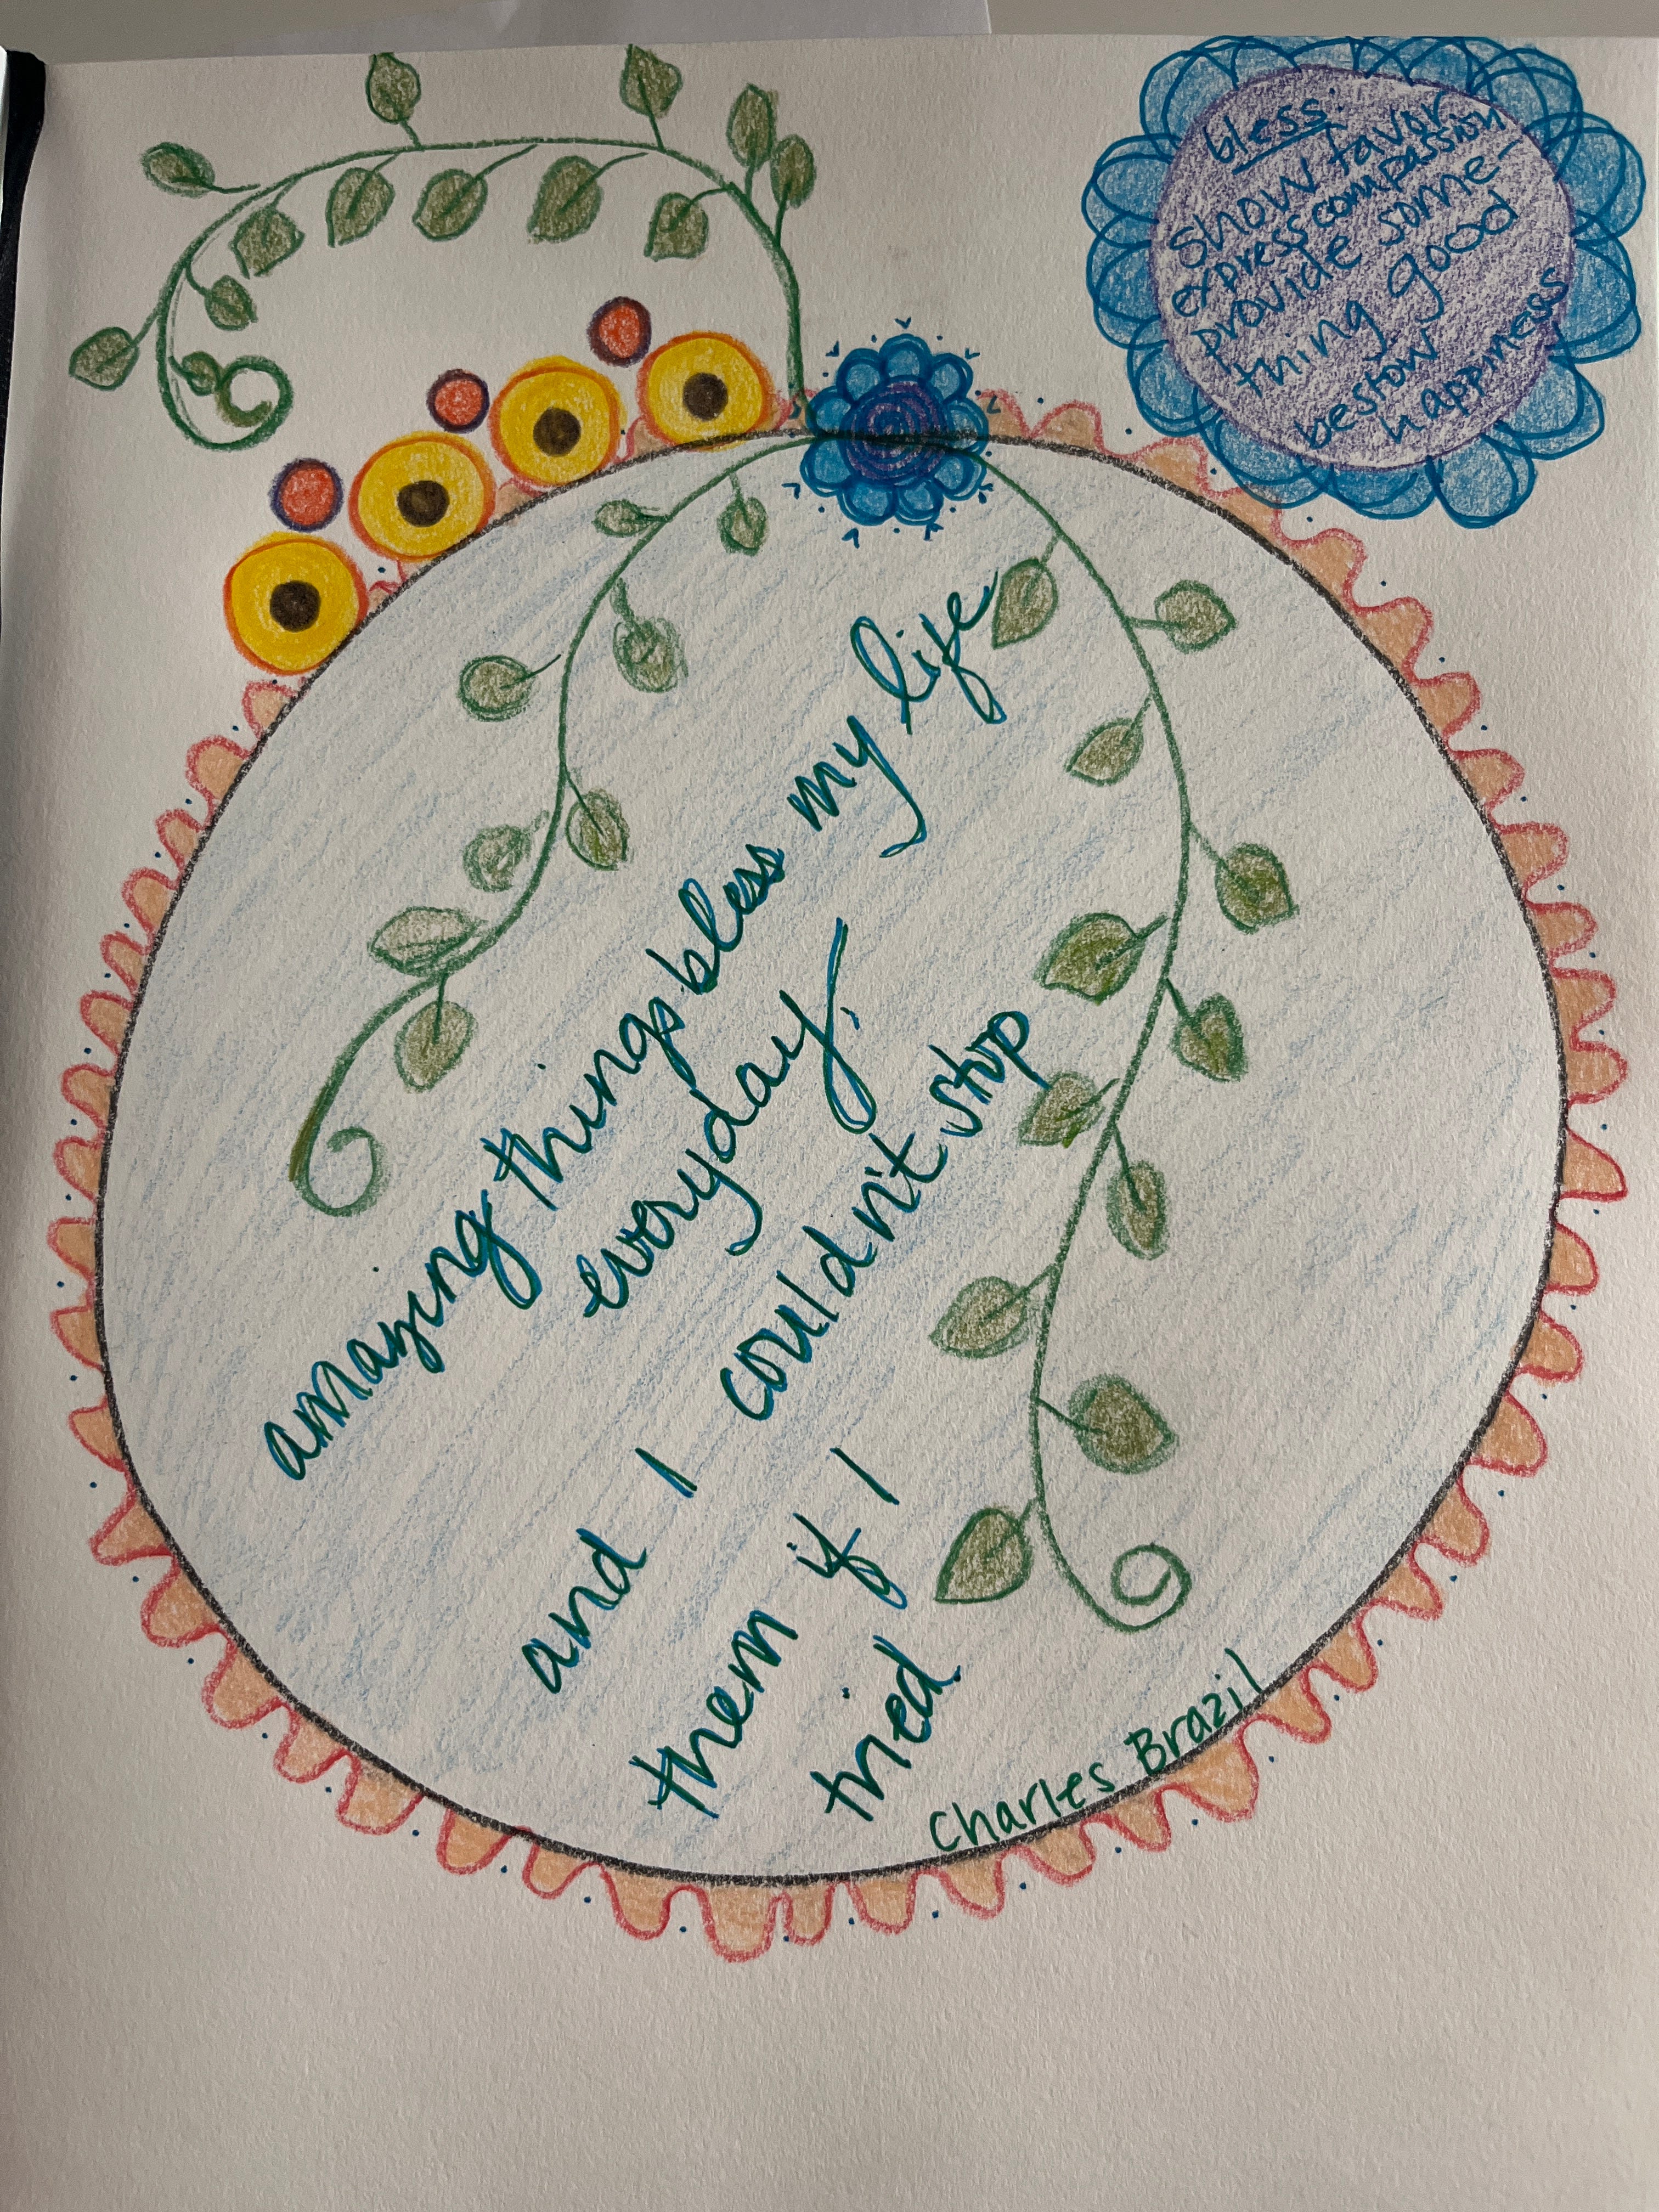 bless:
show favor
express compassion
provide some-
thing good
bestow
happiness
amazing things bless my life
everyday.
and I couldn't stop
them if I
tried.
Charles Brazil